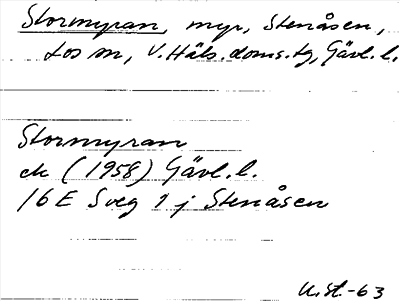 Stormyran, myr, Stenåsen,
Los sn, V. Häls. doms.tg, Gävl. l.
Stormyran
ek (1958) Gävl. l.
16 E Sveg 1 j Stenåsen
U.st.-63